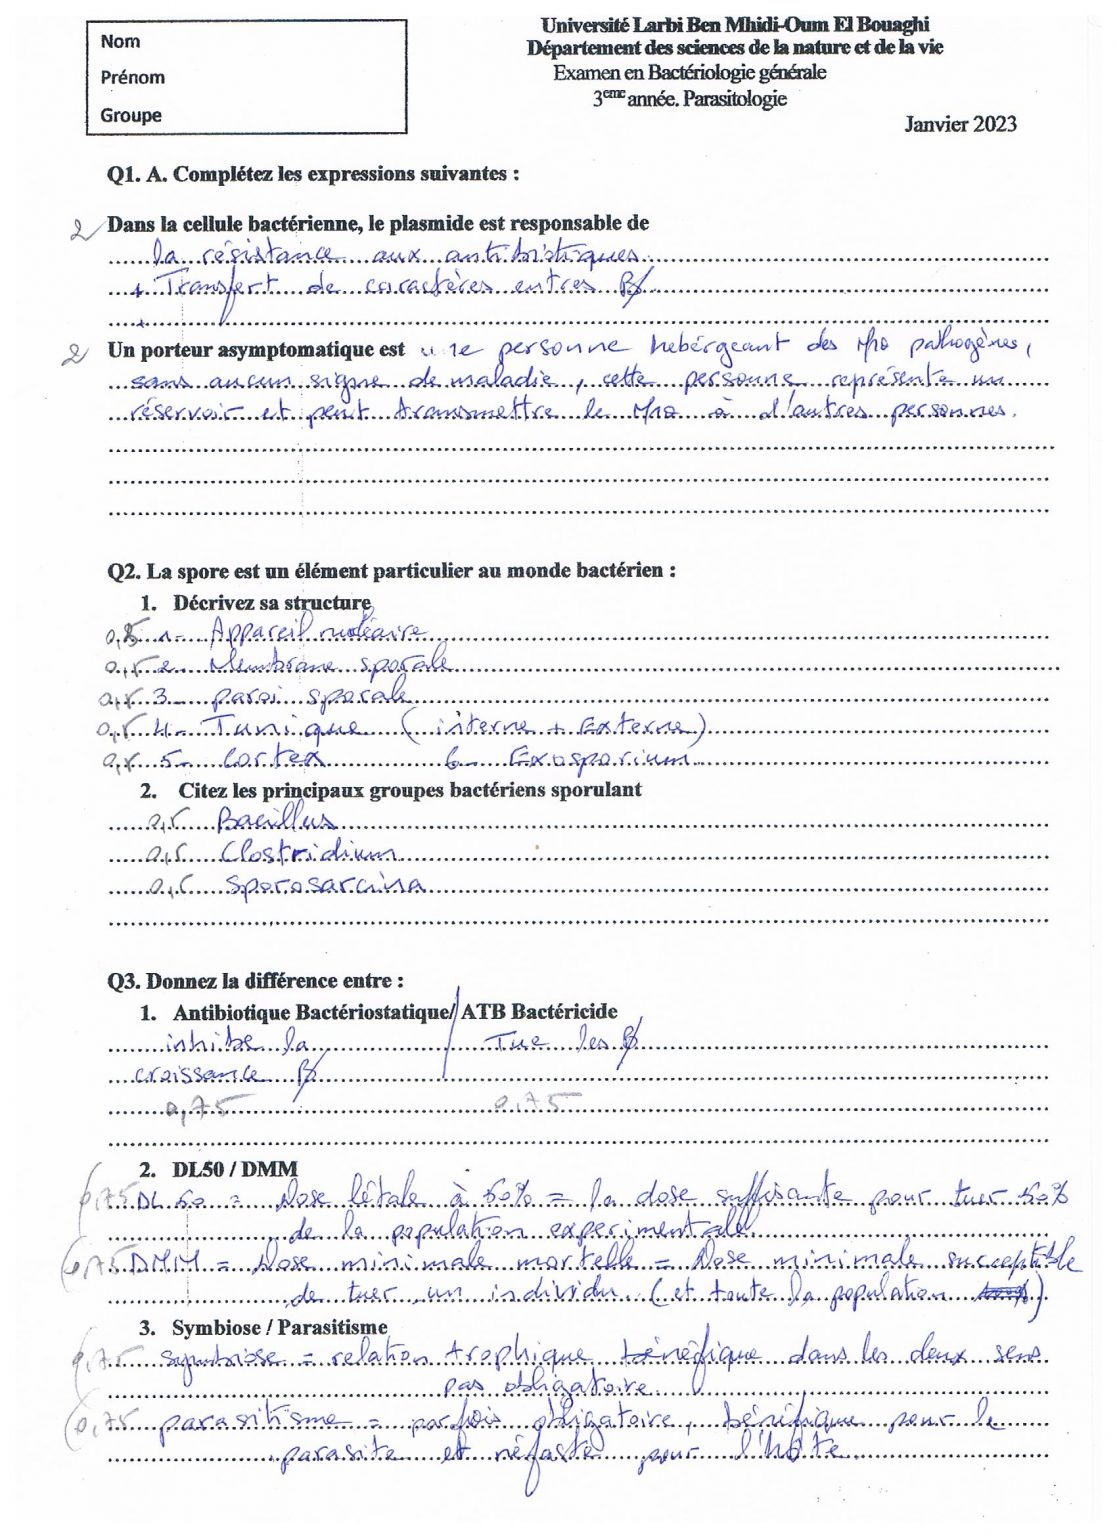 Nom
Prénom
Groupe
Université Larbi Ben Mhidi-Oum El Bouaghi
Département des sciences de la nature et de la vie
Examen en Bactériologie générale
3eme année. Parasitologie
Janvier 2023
Q1. A. Complétez les expressions suivantes :
2 Dans la cellule bactérienne, le plasmide est responsable de
la résistance aux antibiotiques
+ Transfert de caractères entres B/
+
2 Un porteur asymptomatique est une personne hebérgeant des Mro pathogènes,
sans aucun signe de maladie, cette personne représente un
réservoir et peut transmettre le Mro à d'autres personnes.
Q2. La spore est un élément particulier au monde bactérien :
1. Décrivez sa structure
0,5 1- Appareil nucléaire
0,5 2- Membrane sporale
0,5 3- paroi sporale
0,5 4- Tunique (interne + Externe)
0,5 5- Cortex 6- Exosporium
2. Citez les principaux groupes bactériens sporulant
0,5 Bacillus
0,5 Clostridium
0,5 Sporosarcina
Q3. Donnez la différence entre :
1. Antibiotique Bactériostatique/ ATB Bactéricide
inhibe la / Tue les B/
croissance B/
0,75 0,75
2. DL50 / DMM
0,75 DL 50 = Dose létale à 50% = la dose suffisante pour tuer 50%
de la population experimentale
0,75 DMM = Dose minimale mortelle = Dose minimale susceptible
de tuer un individu (et toute la population )
3. Symbiose / Parasitisme
0,75 symbiose = relation trophique bénéfique dans les deux sens
pas obligatoire
0,75 parasitisme = parfois obligatoire, bénéfique pour le
parasite et néfaste pour l'hôte.